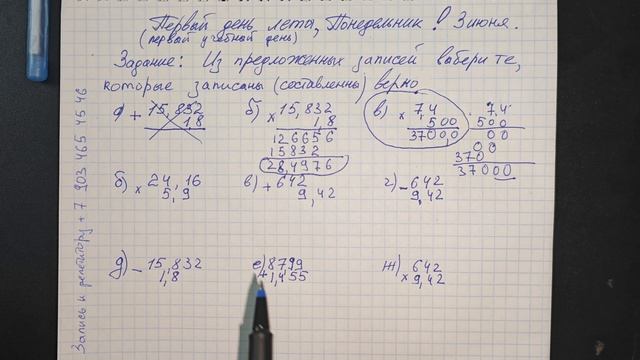 Первый день лета, Понедельник! 3 июня.
(первый учебный день)
Задание: Из предложенных записей выберите,
которые записаны (составленны) верно
а) + 15,832
1,8
б) × 15,832
1,8
126656
15832
28,4976
в) × 7,4
500
3700,0
7,4
500
00
00
370
37000
б) × 24,16
5,9
в) + 642
9,42
г) - 642
9,42
д) - 15,832
1,8
е) 8799
+ 1,455
ж) 642
× 9,42
Запись к репетитору + 7 903 465 45 46